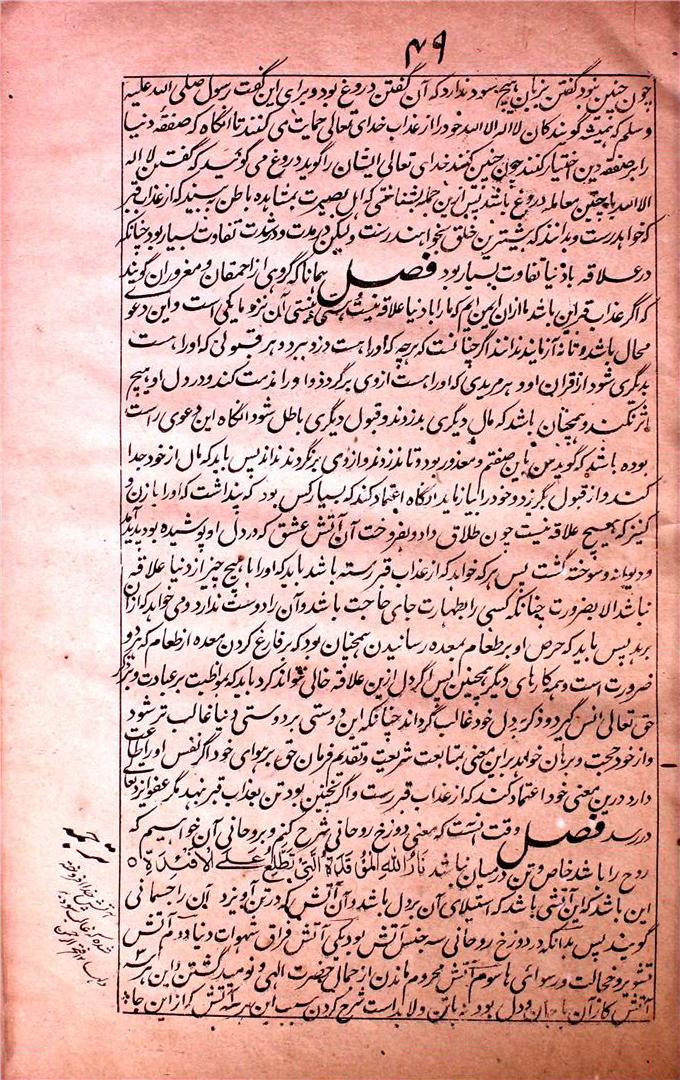 ۴۹
چون چنین بود گفتن بزبان هیچ سود ندارد که آن گفتن دروغ بود و برای این گفت رسول صلی الله علیه
وسلم که همیشه گویندگان لا اله الا الله خود را از عذاب خدای تعالی حمایت می کنند تا آنگاه که صفقه دنیا
را بر صفقه دین اختیار کنند چون چنین کنند خدای تعالی ایشان را گوید دروغ می گوئید که گفتن لا اله
الا الله با چنین معامله دروغ باشد پس ازین جمله بشناختی که اهل بصیرت بمشاهده باطن ببینند که از عذاب قبر
که خواهد رست و بدانند که بیشترین خلق نخواهند رست ولیکن در مدت و در شدت تفاوت بسیار بود چنانکه
در علاقه با دنیا تفاوت بسیار بود فصل همانا که گروهی از احمقان و مغروران گویند
که اگر عذاب قبر این باشد ما ازان ایمن ایم که ما را با دنیا علاقه نیست هستی و نیستی آن نزد ما یکی است و این دعوی
محال باشد و تا نه آزمایند ندانند اگر چنانست که هرچه که او راهست دزد ببرد و هر قبولی که او راهست
بدیگری شود از اقران او و هر مریدی که او راهست از وی برگردد و او را مذمت کند و در دل او هیچ
اثر نکند و همچنان باشد که مال دیگری بدزدند و قبول دیگری باطل شود آنگاه این دعوی راست
بوده باشد که گوید من باین صفتم و معذور بود و تا ندزدند و از وی برنگردند نداند پس باید که مال از خود جدا
کند و از قبول بگریزد و خود را بیازماید آنگاه اعتماد کند که بسیار کس بود که پنداشت که او را با زن و
کنیزک هیچ علاقه نیست چون طلاق داد و بفروخت آن آتش عشق که در دل او پوشیده بود پدید آمد
و دیوانه و سوخته گشت پس هر که خواهد که از عذاب قبر رسته باشد باید که او را با هیچ چیز از دنیا علاقه
نباشد الا بضرورت چنانکه کسی را بطهارت جای حاجت باشد و آن را دوست ندارد و می خواهد که ازان
برهد پس باید که حرص او بر طعام بمعده رسانیدن همچنان بود که بر فارغ کردن معده از طعام که هر دو
ضرورت است و همه کارهای دیگر همچنین پس اگر دل ازین علاقه خالی نتواند کرد باید که بمواظبت بر عبادت و بر ذکر
حق تعالی انس گیرد و ذکر بر دل خود غالب گرداند چنانکه این دوستی بر دوستی دنیا غالب تر شود
و از خود حجت و برهان خواهد برین معنی بمتابعت شریعت و تقدیم فرمان حق بر هوای خود اگر نفس او را طاعت
دارد درین معنی خود اعتماد کند که از عذاب قبر رست و اگر نچنین بود تن بعذاب قبر بنهد مگر عفو ایزد تعالی
در رسد فصل وقت آنست که معنی دوزخ روحانی شرح کنیم و بروحانی آن خواهیم که
روح را باشد خاص و تن در میان نباشد نَارُ اللهِ الْمُوقَدَةُ الَّتِي تَطَّلِعُ عَلَى الْأَفْئِدَةِ ○
این باشد که این آتشی باشد که استیلای آن بر دل باشد و آن آتش که در تن آویزد این را جسمانی
گویند پس بدانکه در دوزخ روحانی سه جنس آتش بود یکی آتش فراق شهوات دنیا دوم آتش
تشویر و خجالت و رسوائی ها سوم آتش محروم ماندن از جمال حضرت الهی و نومید گشتن و این هر سه
آتش کار آن با جان و دل بود نه با تن و لابد است شرح کردن سبب این هر سه آتش که از این جا
ترجمه